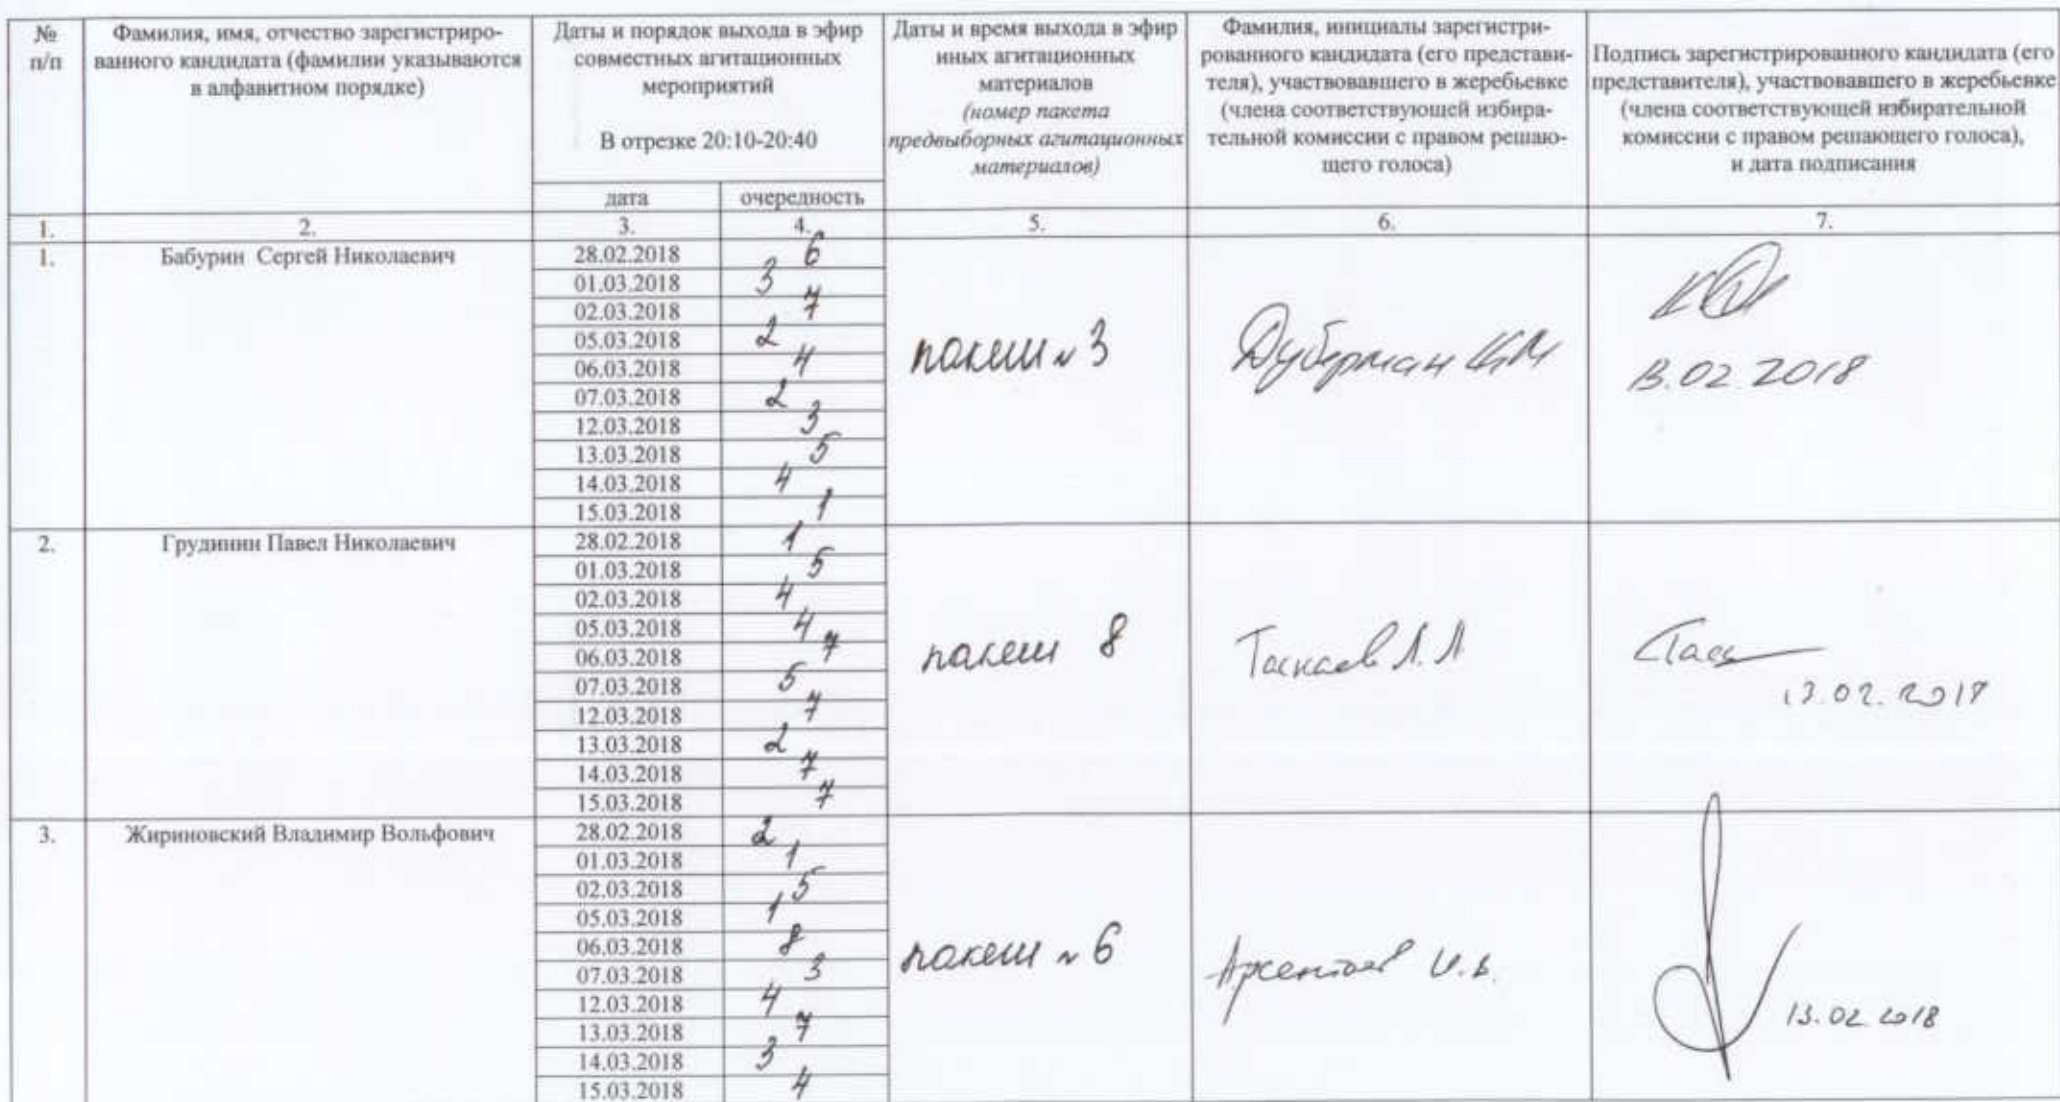 №
п/п
Фамилия, имя, отчество зарегистриро-
ванного кандидата (фамилии указываются
в алфавитном порядке)
Даты и порядок выхода в эфир
совместных агитационных
мероприятий
В отрезке 20:10-20:40
дата
очередность
Даты и время выхода в эфир
иных агитационных
материалов
(номер пакета
предвыборных агитационных
материалов)
Фамилия, инициалы зарегистри-
рованного кандидата (его представи-
теля), участвовавшего в жеребьевке
(члена соответствующей избира-
тельной комиссии с правом решаю-
щего голоса)
Подпись зарегистрированного кандидата (его
представителя), участвовавшего в жеребьевке
(члена соответствующей избирательной
комиссии с правом решающего голоса),
и дата подписания
1. 2. 3. 4. 5. 6. 7.
1. Бабурин Сергей Николаевич
28.02.2018 6
01.03.2018 3
02.03.2018 7
05.03.2018 2
06.03.2018 4
07.03.2018 2
12.03.2018 3
13.03.2018 5
14.03.2018 4
15.03.2018 1
пакет № 3
Дуберман
13.02.2018
2. Грудинин Павел Николаевич
28.02.2018 1
01.03.2018 5
02.03.2018 4
05.03.2018 4
06.03.2018 7
07.03.2018 5
12.03.2018 7
13.03.2018 2
14.03.2018 7
15.03.2018 7
пакет 8
Таскаев Л.Л
13.02.2018
3. Жириновский Владимир Вольфович
28.02.2018 2
01.03.2018 1
02.03.2018 5
05.03.2018 1
06.03.2018 8
07.03.2018 3
12.03.2018 4
13.03.2018 7
14.03.2018 3
15.03.2018 4
пакет № 6
Арсентьев И.В.
13.02.2018